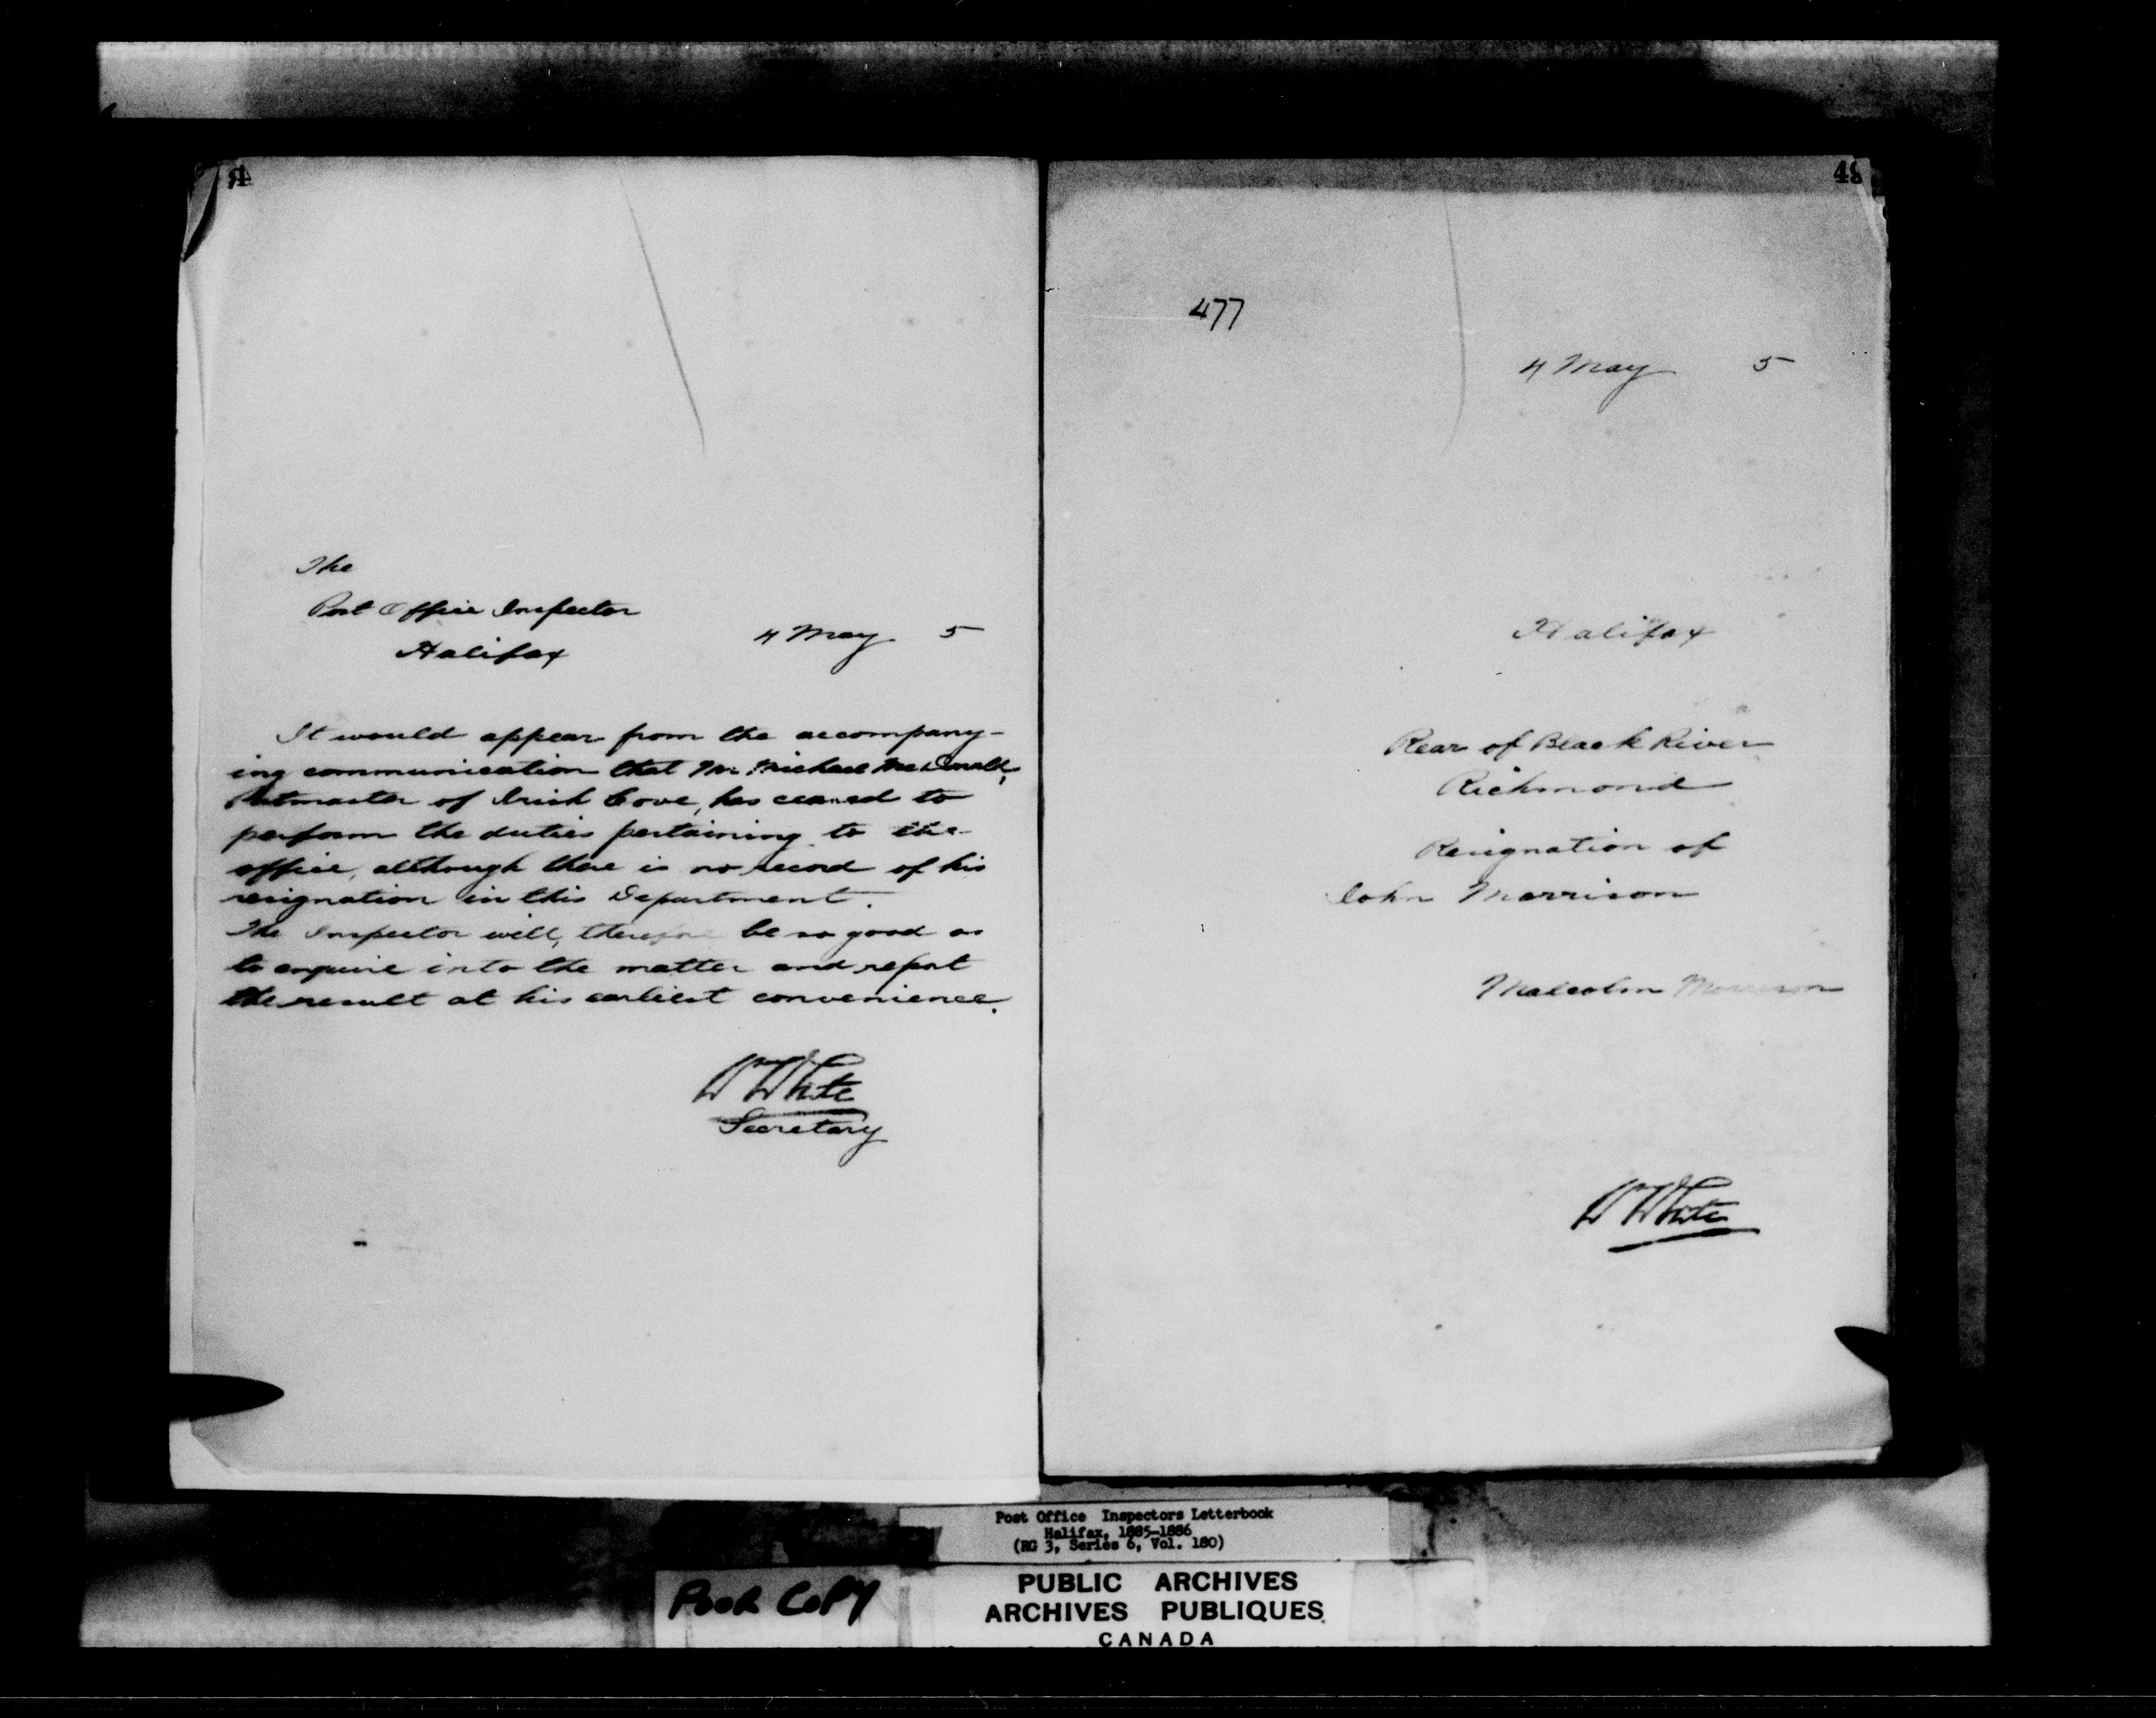 The
Post Office Inspector
Halifax
4 May 5
It would appear from the accompany-
ing communication that Mr. Michael McDonald,
Postmaster of Irish Cove, has ceased to
perform the duties pertaining to the
office, although there is no record of his
resignation in this Department.
The Inspector will, therefore be so good as
to enquire into the matter and report
the result at his earliest convenience.
W White
Secretary
49
477
4 May 5
Halifax
Rear of Black River
Richmond
Resignation of
John Morrison
Malcolm Morrison
W White
Post Office Inspectors Letterbook
Halifax, 1885-1886
(RG 3, Series 6, Vol. 180)
POOR COPY
PUBLIC ARCHIVES
ARCHIVES PUBLIQUES
CANADA